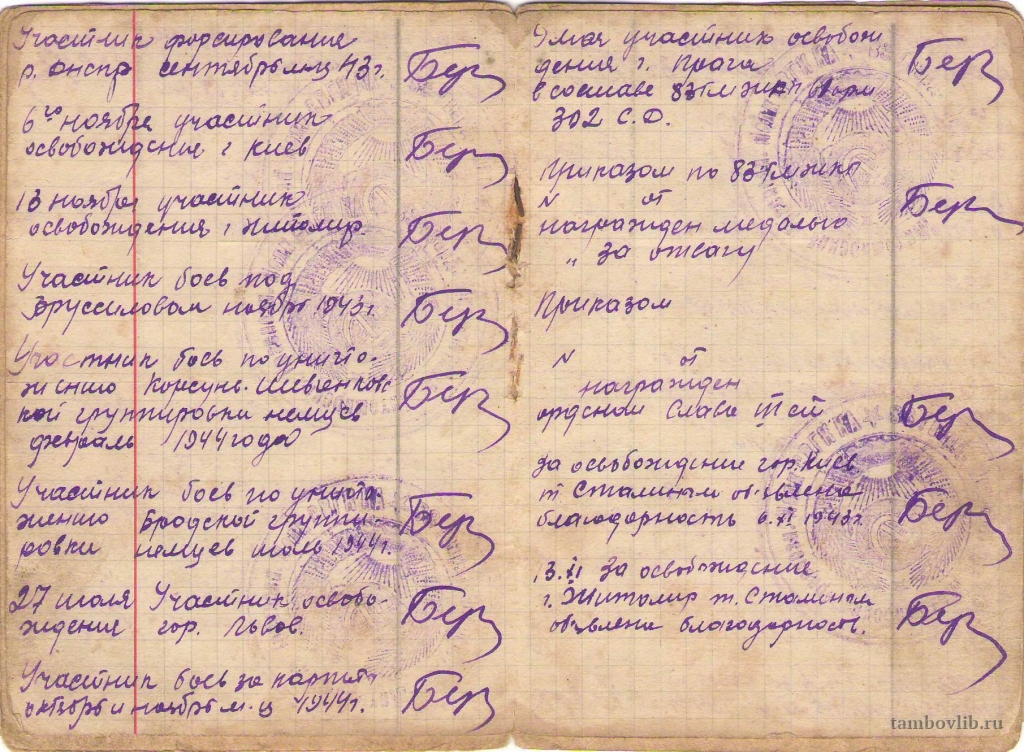 Участник форсирование
р. Днепр сентябрь м-ц 43 г. Бер
6го ноября участник
освобождение г Киев Бер
13 ноября участник
освобождения г Житомир. Бер
Участник боев под
Бруссиловом ноябрь 1943 г. Бер
Участник боев по уничто-
жению Корсунь-Шевченковс
кой группировки немцев Бер
февраль 1944 года
Участник боев по уничто
жению Бродской группи-
ровки немцев июль 1944 г. Бер
27 июля Участник освобо-
ждение гор. Львов. Бер
Участник боев за карпаты
октябрь и ноябрь м-ц 1944 г. Бер
9 мая участник освобож
дения г. Прага Бер
в составе 83 гв
302 С.Д.
Приказом по 83
N от
награжден медалью Бер
„ За отвагу
Приказом
N от
награжден
орденом Слава III ей Бер
За освобождение гор. Киев
т Сталиным обявлена
благодарность 6.XI 1943 г. Бер
13.XI За освобождение
г. Житомир т. Сталиным
обявлена благодарность. Бер
tambovlib.ru